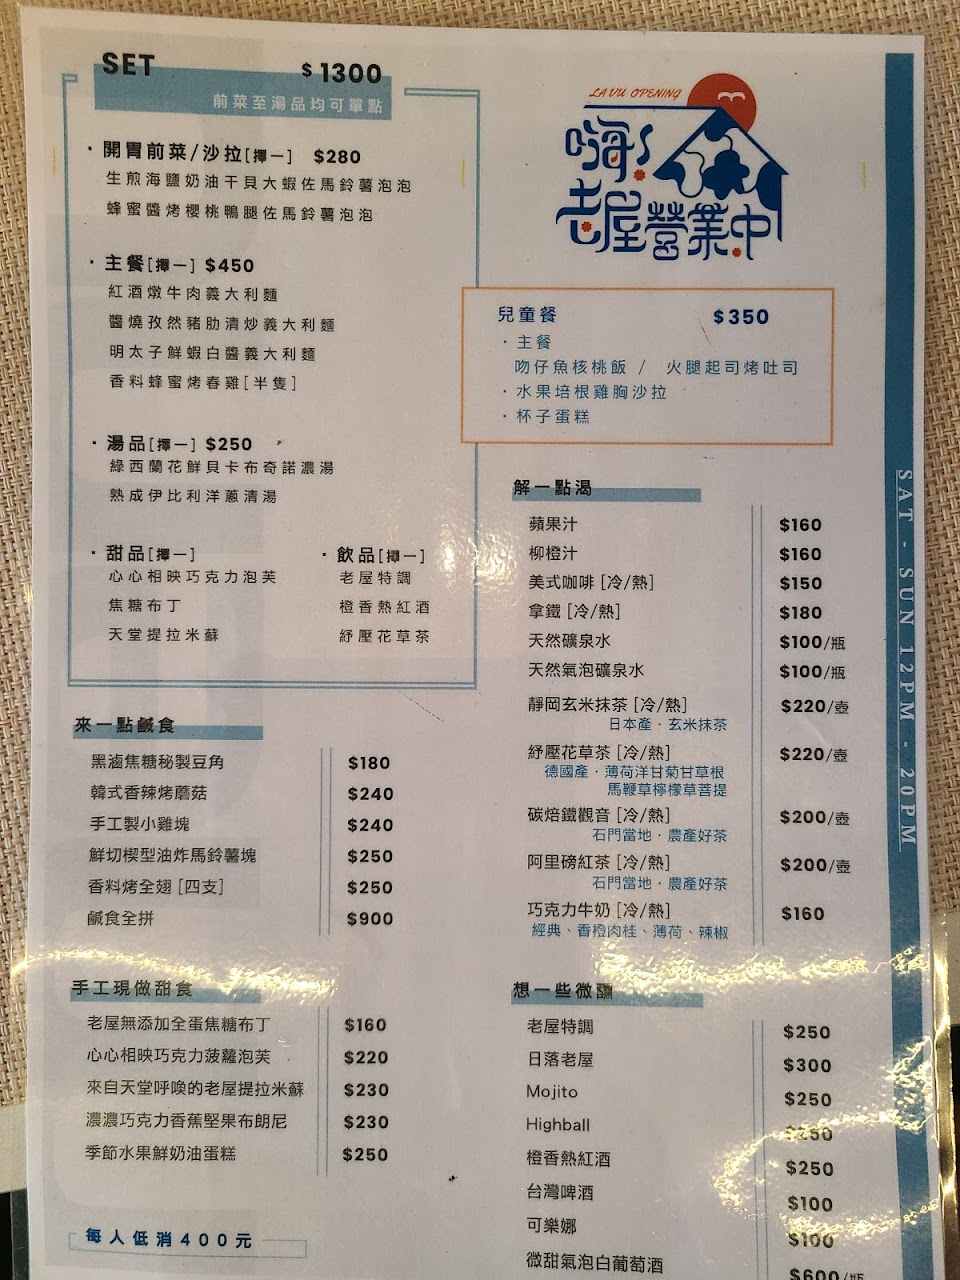 SET $1300
前菜至湯品均可單點
・開胃前菜/沙拉[擇一] $280
生煎海鹽奶油干貝大蝦佐馬鈴薯泡泡
蜂蜜醬烤櫻桃鴨腿佐馬鈴薯泡泡
・主餐[擇一] $450
紅酒燉牛肉義大利麵
醬燒孜然豬肋清炒義大利麵
明太子鮮蝦白醬義大利麵
香料蜂蜜烤春雞[半隻]
・湯品[擇一] $250
綠西蘭花鮮貝卡布奇諾濃湯
熟成伊比利洋蔥清湯
・甜品[擇一]
心心相映巧克力泡芙
焦糖布丁
天堂提拉米蘇
・飲品[擇一]
老屋特調
橙香熱紅酒
紓壓花草茶
來一點鹹食
黑滷焦糖秘製豆角 $180
韓式香辣烤蘑菇 $240
手工製小雞塊 $240
鮮切楔型油炸馬鈴薯塊 $250
香料烤全翅[四支] $250
鹹食全拼 $900
手工現做甜食
老屋無添加全蛋焦糖布丁 $160
心心相映巧克力菠蘿泡芙 $220
來自天堂呼喚的老屋提拉米蘇 $230
濃濃巧克力香蕉堅果布朗尼 $230
季節水果鮮奶油蛋糕 $250
每人低消400元
LAVU OPENING
嗨!
老屋營業中
兒童餐 $350
・主餐
吻仔魚核桃飯 / 火腿起司烤吐司
・水果培根雞胸沙拉
・杯子蛋糕
解一點渴
蘋果汁 $160
柳橙汁 $160
美式咖啡 [冷/熱] $150
拿鐵 [冷/熱] $180
天然礦泉水 $100/瓶
天然氣泡礦泉水 $100/瓶
靜岡玄米抹茶 [冷/熱] $220/壺
日本產・玄米抹茶
紓壓花草茶 [冷/熱] $220/壺
德國產・薄荷洋甘菊甘草根
馬鞭草檸檬草菩提
碳焙鐵觀音 [冷/熱] $200/壺
石門當地・農產好茶
阿里磅紅茶 [冷/熱] $200/壺
石門當地・農產好茶
巧克力牛奶 [冷/熱] $160
經典、香橙肉桂、薄荷、辣椒
想一些微醺
老屋特調 $250
日落老屋 $300
Mojito $250
Highball $250
橙香熱紅酒 $250
台灣啤酒 $100
可樂娜 $100
微甜氣泡白葡萄酒 $600/瓶
SAT - SUN 12PM - 20PM